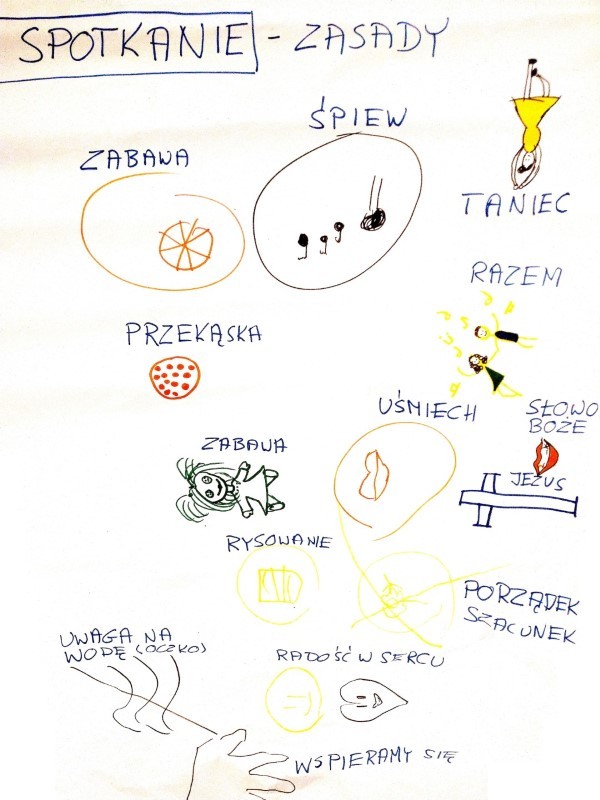 SPOTKANIE - ZASADY
ŚPIEW
ZABAWA
TANIEC
RAZEM
PRZEKĄSKA
UŚMIECH
SŁOWO
BOŻE
ZABAWA
JEZUS
RYSOWANIE
PORZĄDEK
SZACUNEK
UWAGA NA
WODĘ (OCZKO)
RADOŚĆ W SERCU
WSPIERAMY SIĘ